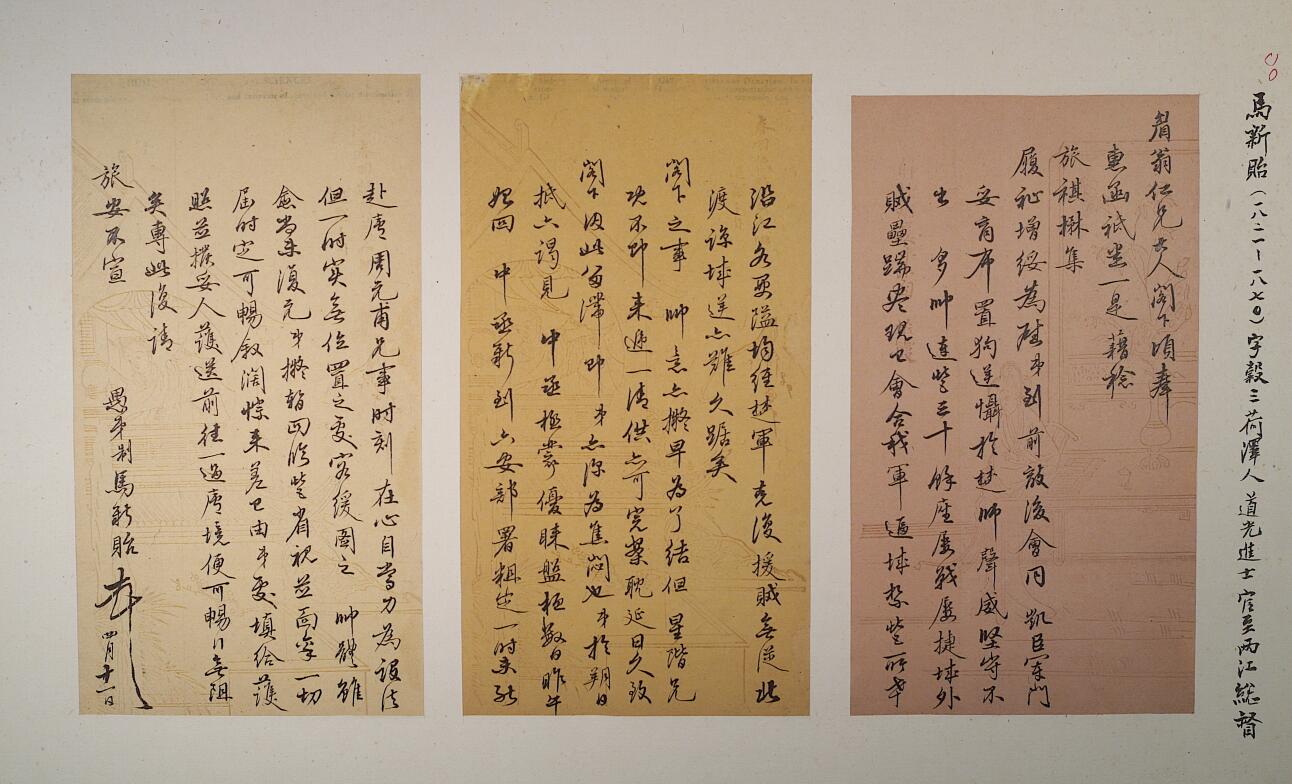 馬新貽(一八二一-一八七〇)字穀三荷澤人 道光進士官至兩江總督
眉翁仁兄大人閣下頃奉
惠函祗悉一是藉稔
旅祺楙集
履祉增綏為慰弟到前敵後會同 凱臣軍門
妥商布置狗逆懾於楚師聲威堅守不
出 多帥連營三十餘座屢戰屢捷城外
賊壘蹋盡現已會合我軍逼城紮營一時
沿江各要隘均經楚軍克復援賊無從
渡諒城逆亦難久踞矣
閣下之事 帥意亦擬早為了結但 星階兄
功不即來遞一清供亦可完案耽延日久致
閣下因此留滯 即弟亦深為焦悶也弟於朔日
抵六謁見 中丞極蒙優睞盤桓數日昨午
始回 中丞新到六安部署粗定一時未能
赴廬周元甫兄事時刻在心自當力為設法
但一時實無位置之處容緩圖之 帥體雖
愈尚未復元弟擬暫回臨營省視並面稟一切
屆時定可暢敘闊悰來差已由弟處填給護
照並撥妥人護送前往一過廬境便可暢行無阻
矣專此復請
旅安不宣
愚弟制馬新貽
四月十一日